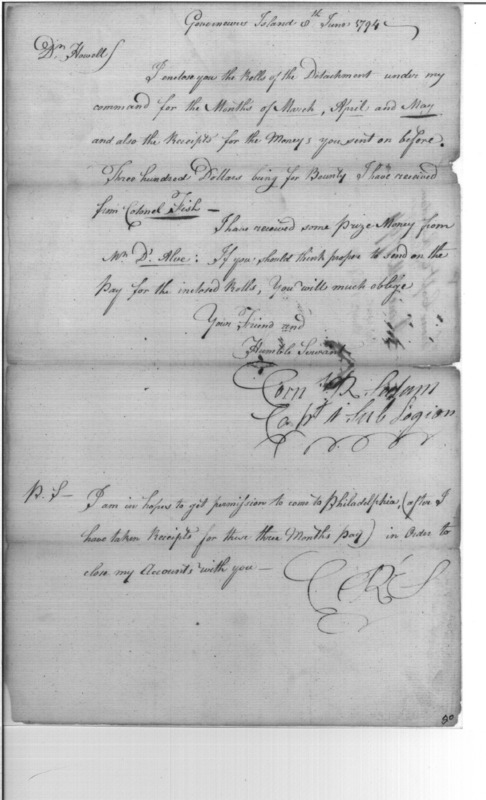 Governours Island 8th June 1794
Dr Howell
I enclose you the Rolls of the Detachment under my
command for the Months of March, April and May
and also the Receipts for the Moneys you sent on before.
Three hundred Dollars being for Bounty I have received
from Colonel Fish —
I have received some Prize Money from
Mr D' Aluc: If you should think proper to send on the
Pay for the inclosed Rolls, You will much oblige
Your Friend and
Humble Servant
Corns R Sedam
Capt 1 Sub Legion
P.S — I am in hopes to get permission to come to Philadelphia, (after I
have taken Receipts for these three Months Pay) in Order to
close my Accounts with you —
C R S
80